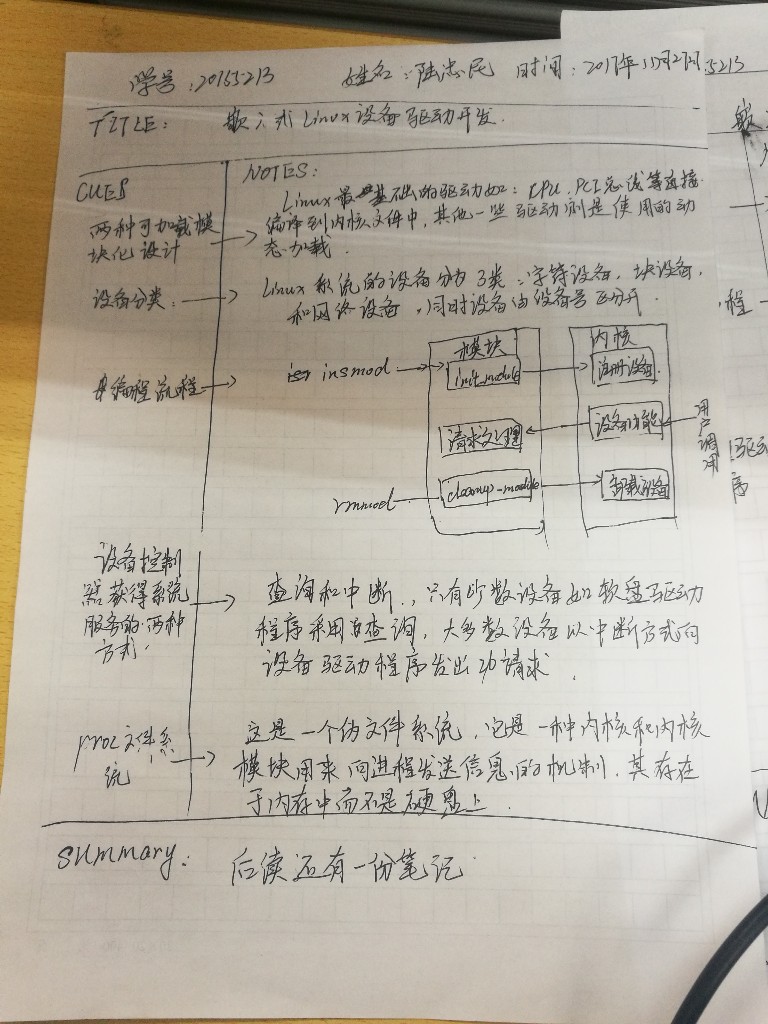 学号:20155213 姓名:陆忠民 时间:2017年11月27日
TITLE: 嵌入式Linux设备驱动开发.
CUES
NOTES:
两种可加载模
块化设计
Linux最基础的驱动如:CPU.PCI总线等直接
编译到内核文件中,其他一些驱动则是使用的动
态加载.
设备分类.
Linux系统的设备分为3类:字符设备,块设备,
和网络设备,同时设备由设备号区分开.
编程流程
模块
内核
insmod
init_module
注册设备.
请求处理
设备功能
用户调用
rmmod
cleanup-module
卸载设备
设备控制
器获得系统
服务的两种
方式.
查询和中断.,只有少数设备如软盘驱动
程序采用查询,大多数设备以中断方式向
设备驱动程序发出I/O请求.
proc文件系
统
这是一个伪文件系统,它是一种内核和内核
模块用来向进程发送信息的机制,其存在
于内存中而不是硬盘上.
summary:
后续还有一份笔记
5213
嵌
程
驱动
序